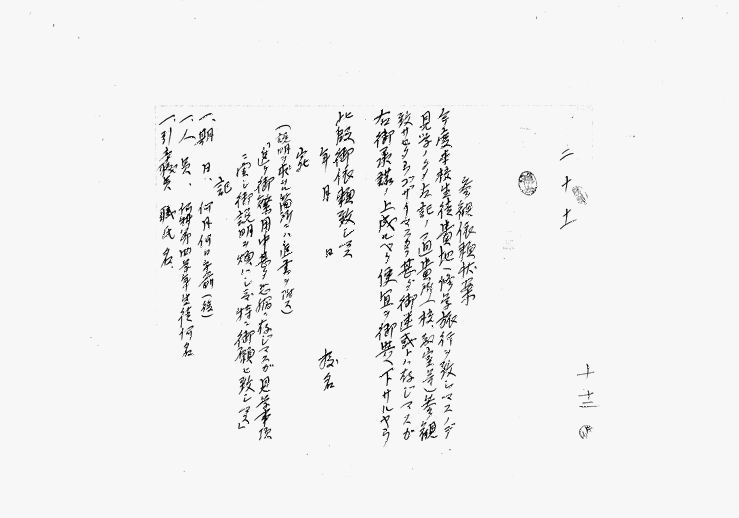 二十、十一
十、十三
参観依頼状案
今度本校生徒貴地ヘ修学旅行ヲ致シマスノデ
見学ノタメ左記ノ通貴所(校、教室等)参観
致サセタウゴザイマスカラ甚ダ御迷惑トハ存ジマスガ
右御承諾ノ上成ルベク便宜ヲ御与ヘ下サルヤウ
此段御依頼致シマス
年 月 日
校名
宛
(説明ヲ求ムル箇所ニハ追書ヲ附ス)
「追テ御繁用中甚ダ恐縮ニ存ジマスガ見学事項
ニ関シ御説明ヲ煩ハシ度特ニ御願ヒ致シマス」
記
一、期 日、 何月何日午前(後)
一、人 員、 何科第四学年生徒何名
一、引率教員 職氏名、